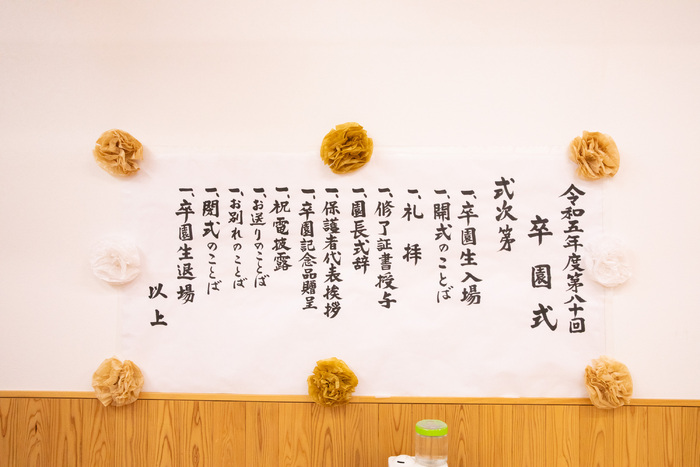 令和五年度第八十回
卒園式
式次第
一、卒園生入場
一、開式のことば
一、礼拝
一、修了証書授与
一、園長式辞
一、保護者代表挨拶
一、卒園記念品贈呈
一、祝電披露
一、お送りのことば
一、お別れのことば
一、閉式のことば
一、卒園生退場
以上